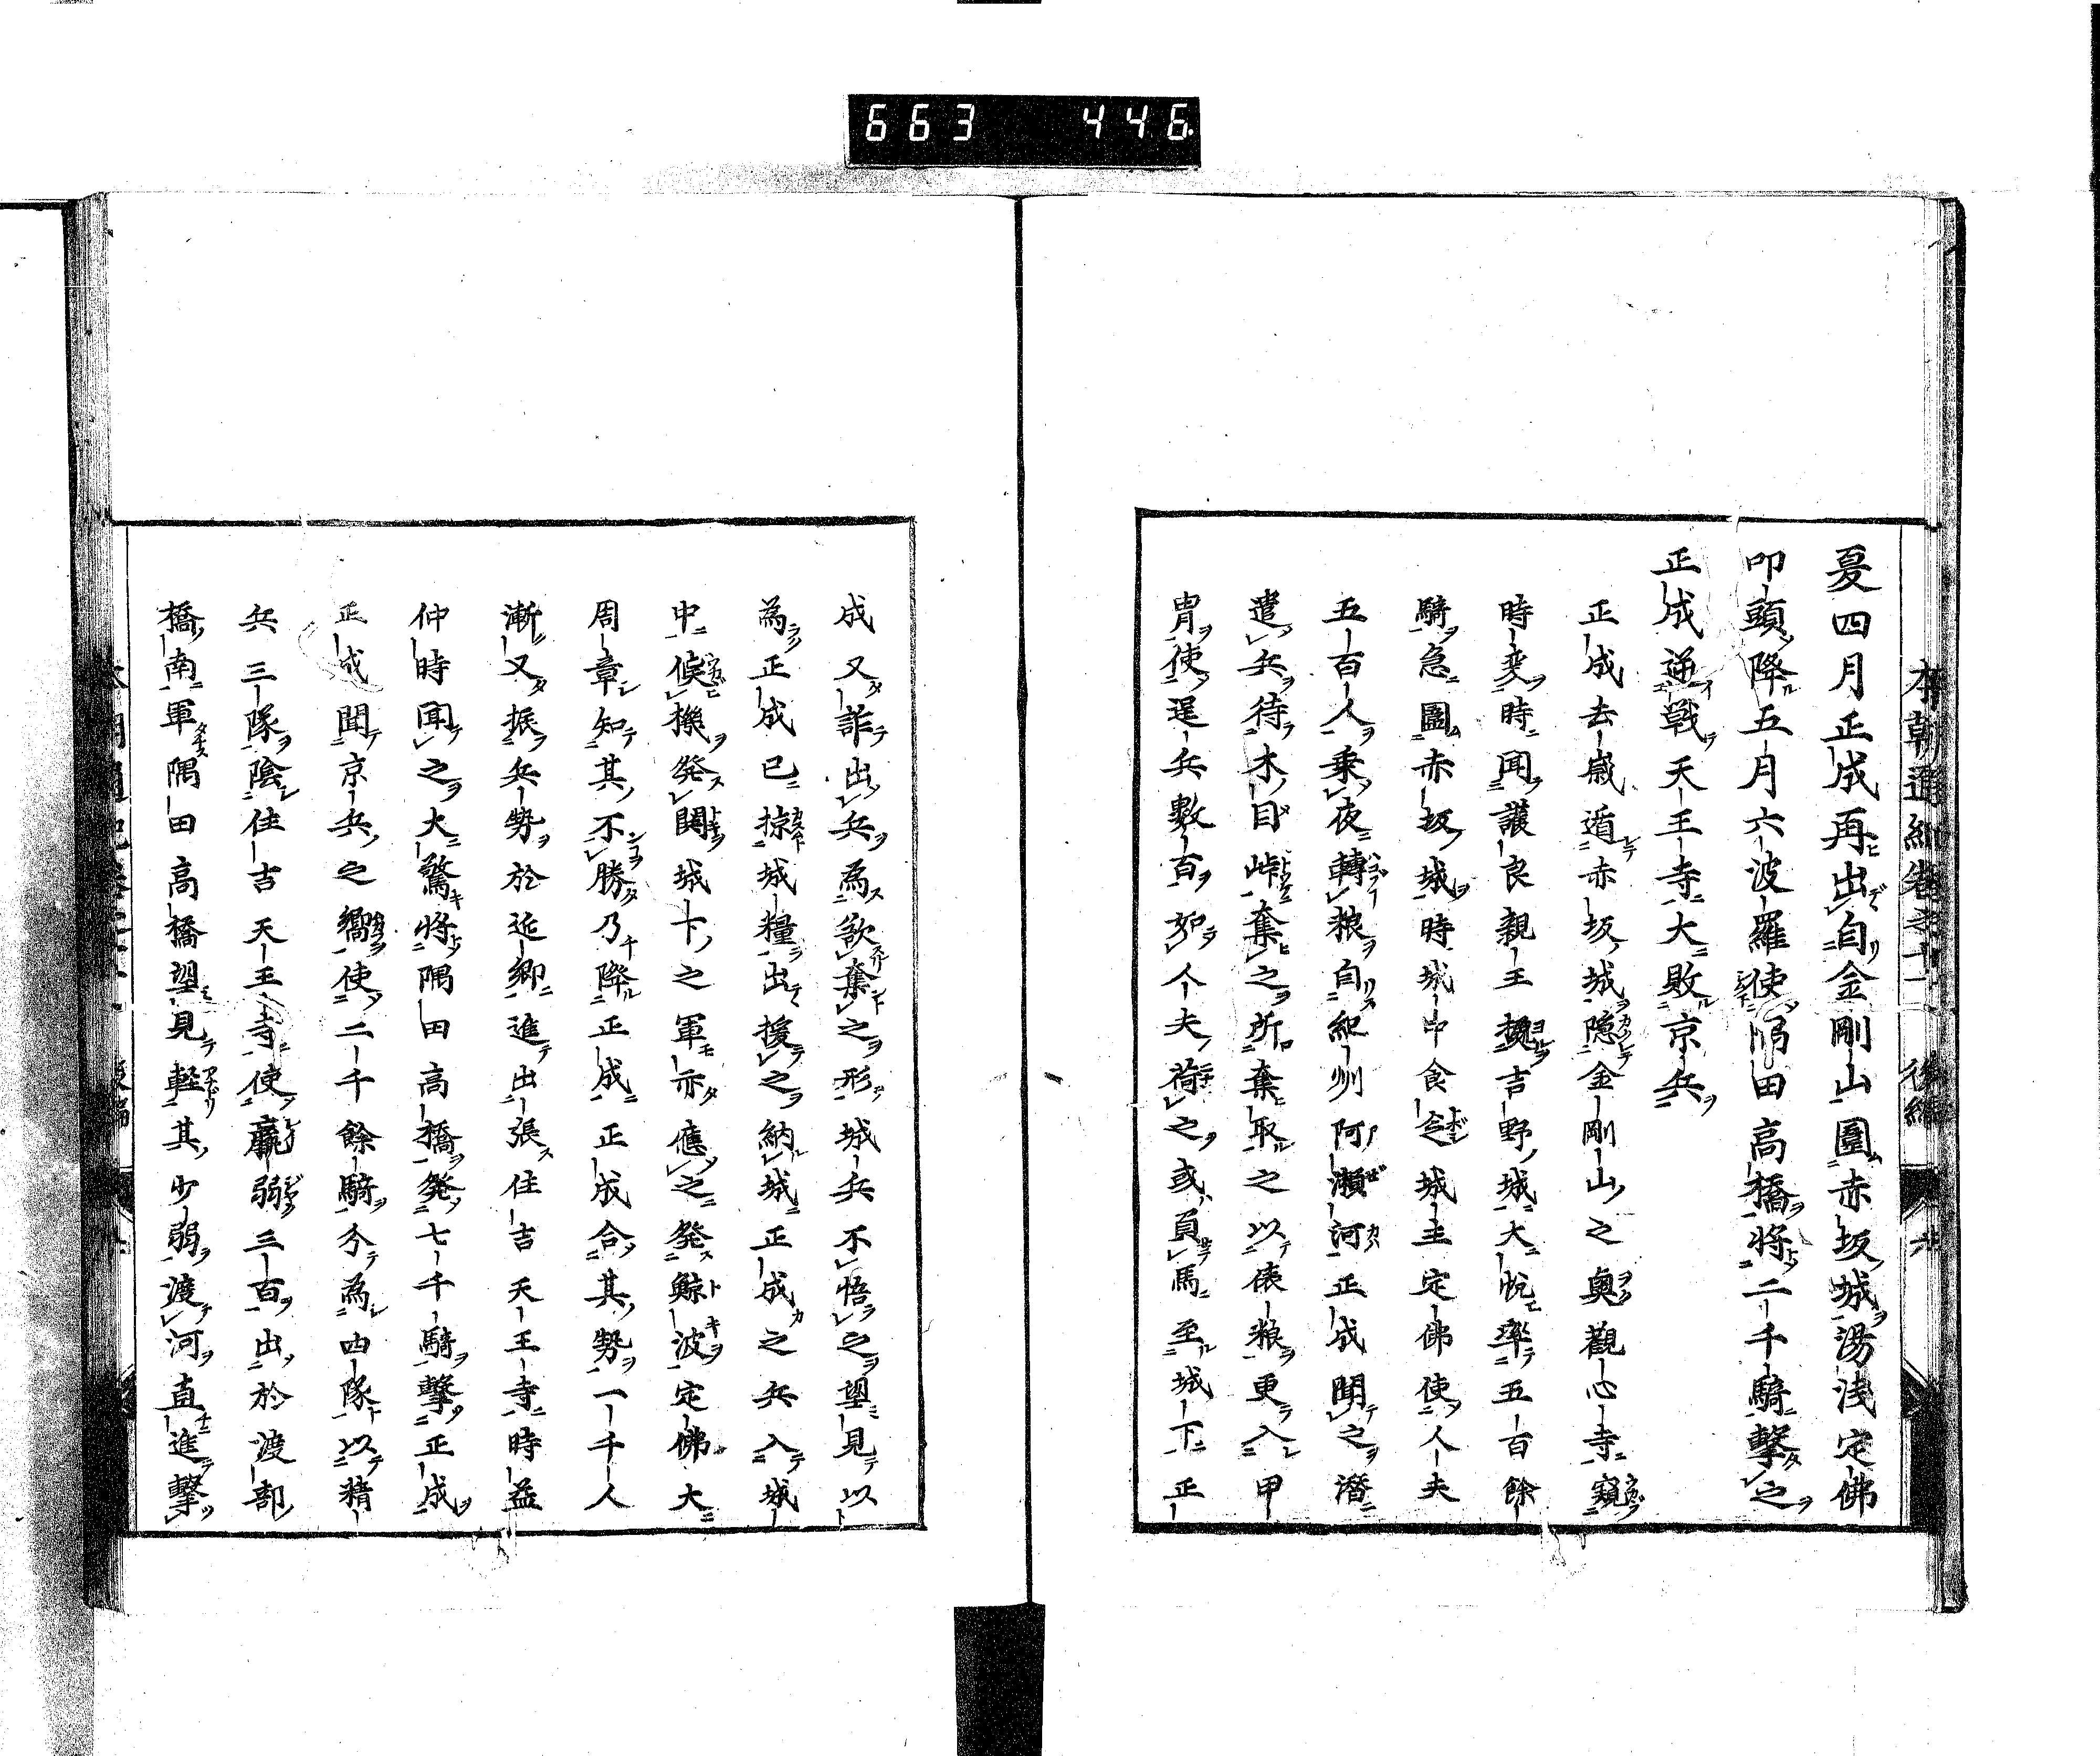 663 446
本朝通紀卷之十一 後編
夏四月正成再出自金剛山圍赤坂城湯浅定佛
叩頭降五月六波羅使隅田高橋將二千騎擊之
正成逆戦天王寺大敗京兵
正成去歳遁赤坂城隠金剛山之奥觀心寺窺
時変時聞護良親王據吉野城大悦率五百餘
騎急圍赤坂城時城中食乏城主定佛使人夫
五百人乗夜轉粮自紀州阿瀬河正成聞之潜
遣兵待木目峠奪之所奪取之以俵粮更入甲
胄使逞兵數百卸人夫荷之或負馬至城下正
成又詐出兵為欲奪之形城兵不悟之望見以
為正成已掠城糧出援之納城正成之兵入城
中候機発鬨城下之軍亦應之発鯨波定佛大
周章知其不勝乃降正成正成合其勢一千人
漸又振兵勢於近郷進出張住吉天王寺時益
仲時聞之大驚將隅田高橋発七千騎擊正成
正成聞京兵之嚮使二千餘騎分為四隊以精
兵三隊陰住吉天王寺使羸弱三百出於渡部
橋南軍隅田高橋望見軽其少弱渡河直進擊